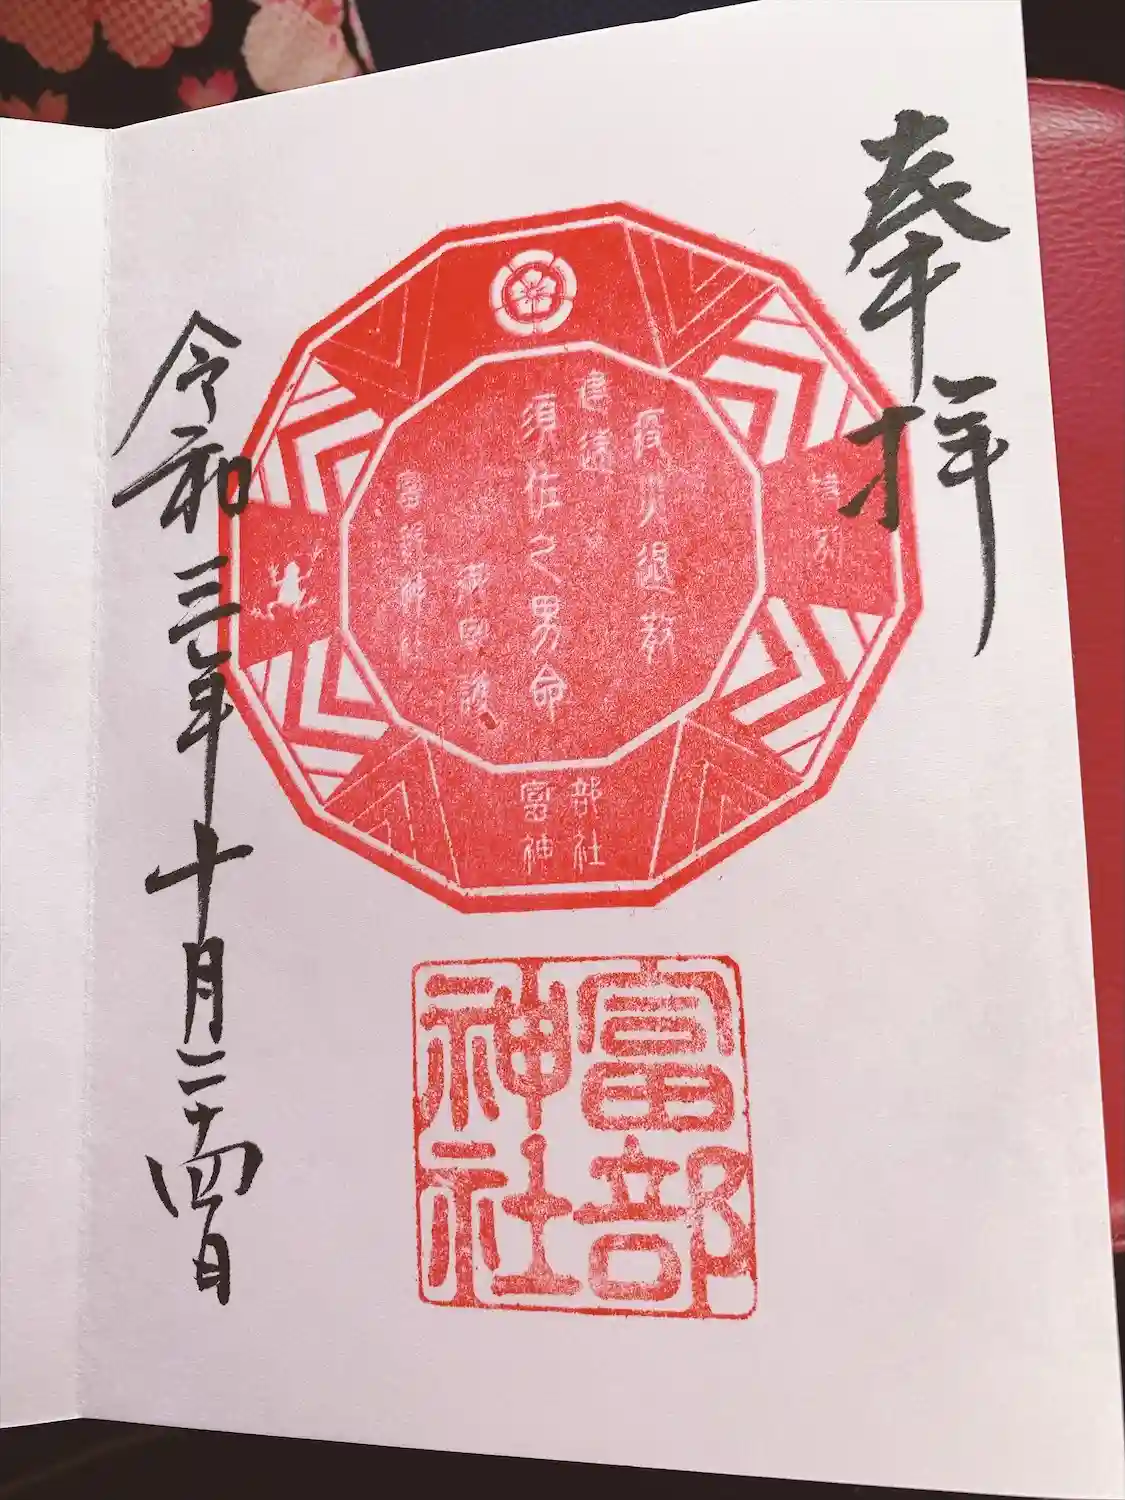 奉拝
特別
疫災退散
建速
須佐之男命
御守護
富部神社
富部
神社
富部
神社
令和三年十月二十四日